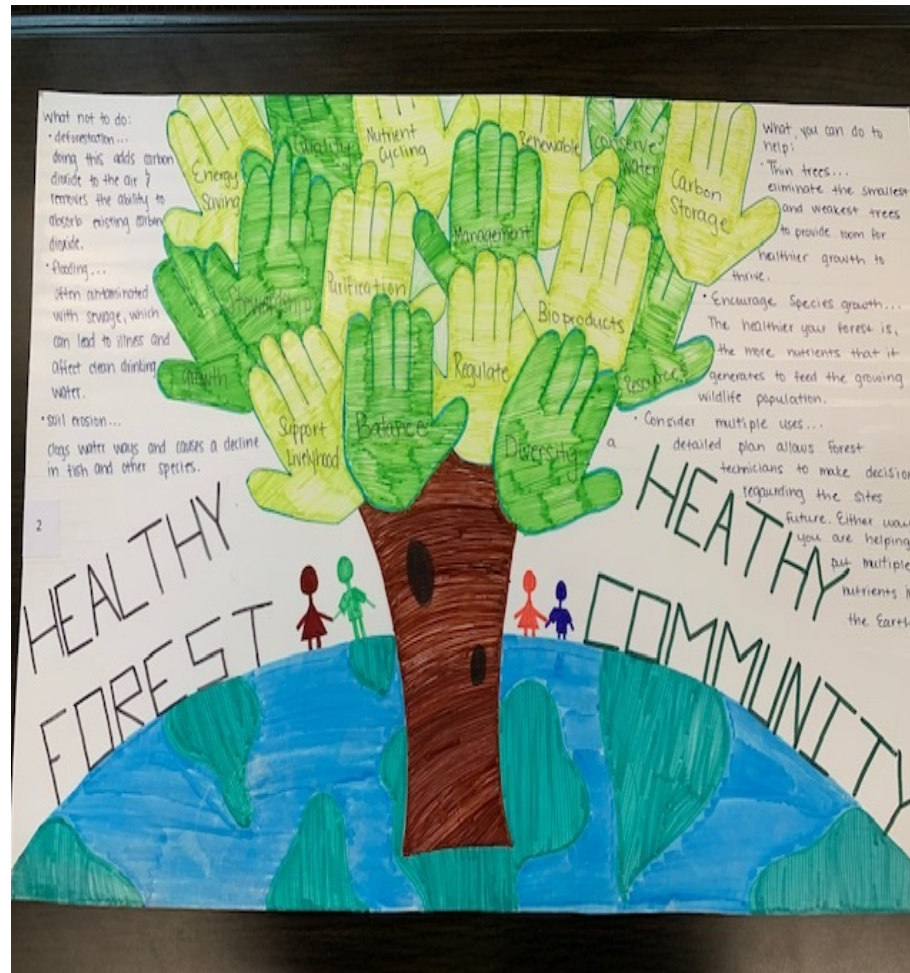 What not to do:
• deforestation...
doing this adds carbon
dioxide to the air &
removes the ability to
absorb existing carbon
dioxide.
• flooding...
often contaminated
with sewage, which
can lead to illness and
affect clean drinking
water.
• soil erosion...
clogs water ways and causes a decline
in fish and other species.
2
Energy
Saving
Quality
Nutrient
Cycling
Renewable
Conserve
Water
Carbon
Storage
Management
Stewardship
Purification
Bioproducts
Growth
Regulate
Resources
Support
Balance
Diversity
What you can do to
help:
• Thin trees...
eliminate the smallest
and weakest trees
to provide room for
healthier growth to
thrive.
• Encourage Species growth...
The healthier your forest is,
the more nutrients that it
generates to feed the growing
wildlife population.
• Consider multiple uses... a
detailed plan allows forest
technicians to make decision
regaurding the sites
future. Either way
you are helping
put multiple
nutrients in
the Earth
HEALTHY
FOREST
HEATHY
COMMUNITY